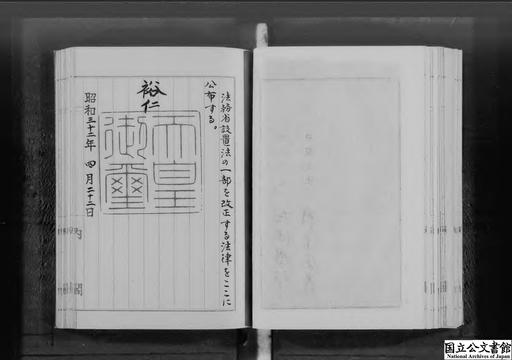 法務省設置法の一部を改正する法律をここに
公布する。
裕仁
天皇
御璽
昭和三十二年四月二十二日
内閣
国立公文書館
National Archives of Japan